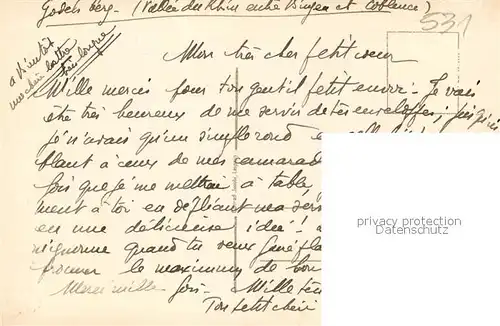 Godesberg - (Vallée du Rhin entre Bingen et Coblence)
531
à bientôt
une chère lettre
très longue
Mon très cher petit coeur
Mille mercis pour ton gentil petit envoi - Je vais
être très heureux de me servir de tes enveloppes; jusqu'ici
je n'avais qu'un simple rond
blant à ceux de mes camarad
fois que je me mettrai à table,
ment à toi en dépliant ma serv
eu une délicieuse idée!!
mignonne quand tu veux
trouver le maximum de bon
Merci mille fois - Mille ten
Ton petit chéri
privacy protection